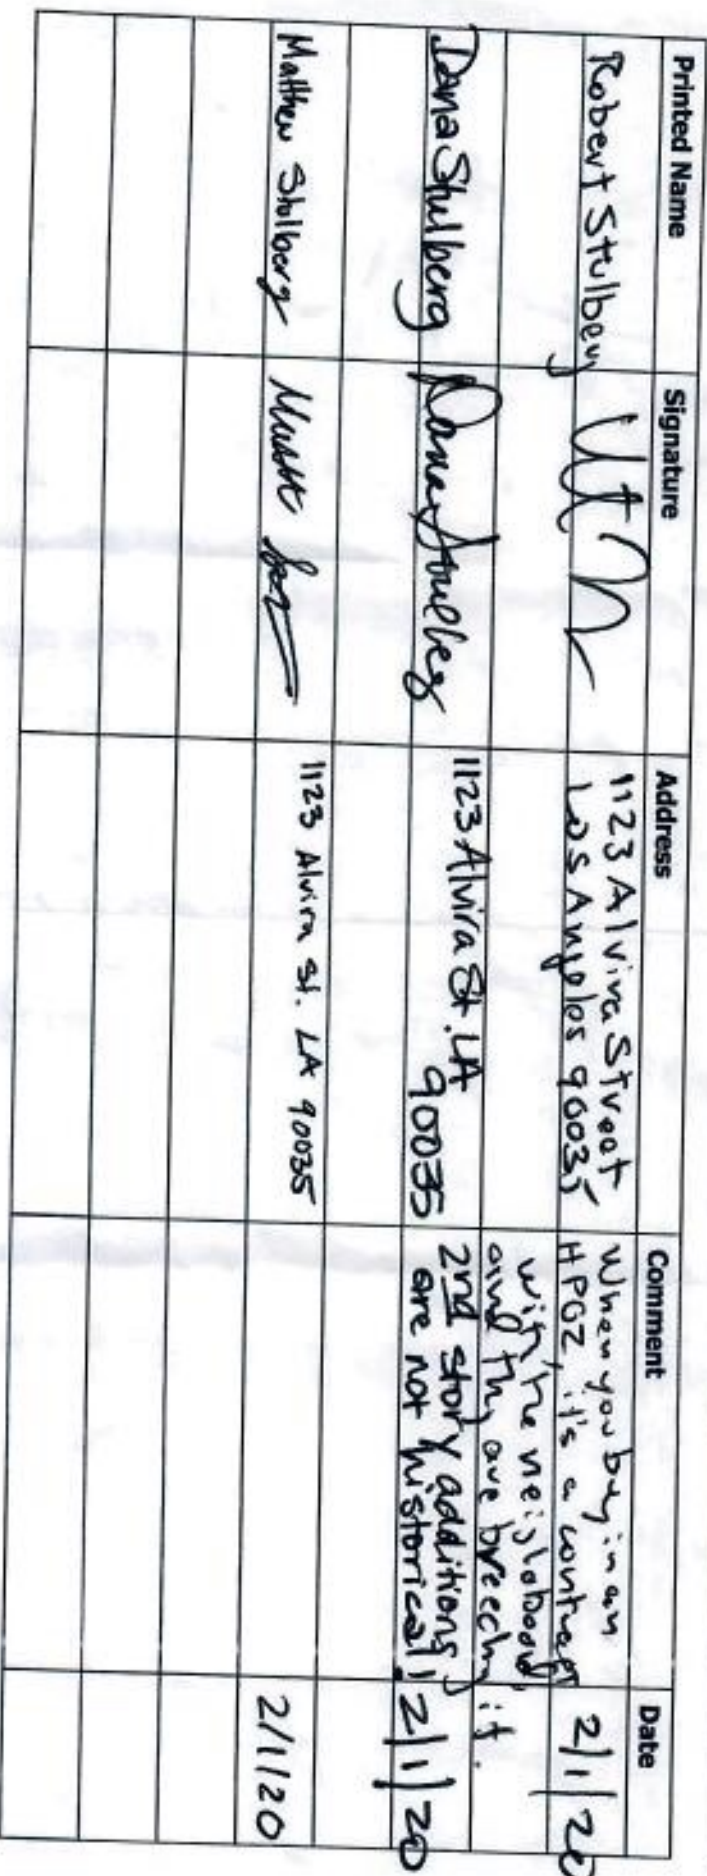 Printed Name Signature Address Comment Date
Robert Stulberg 1123 Alvira Street When you buy in an 2/1/20
Los Angeles 90035 HPOZ, it's a contract
with the neighborhood,
and they are breeching it.
Dana Stulberg Dana Stulberg 1123 Alvira St. LA 2nd story additions 2/1/20
90035 are not historical!
Matthew Stulberg 1123 Alvira St. LA 90035 2/1/20